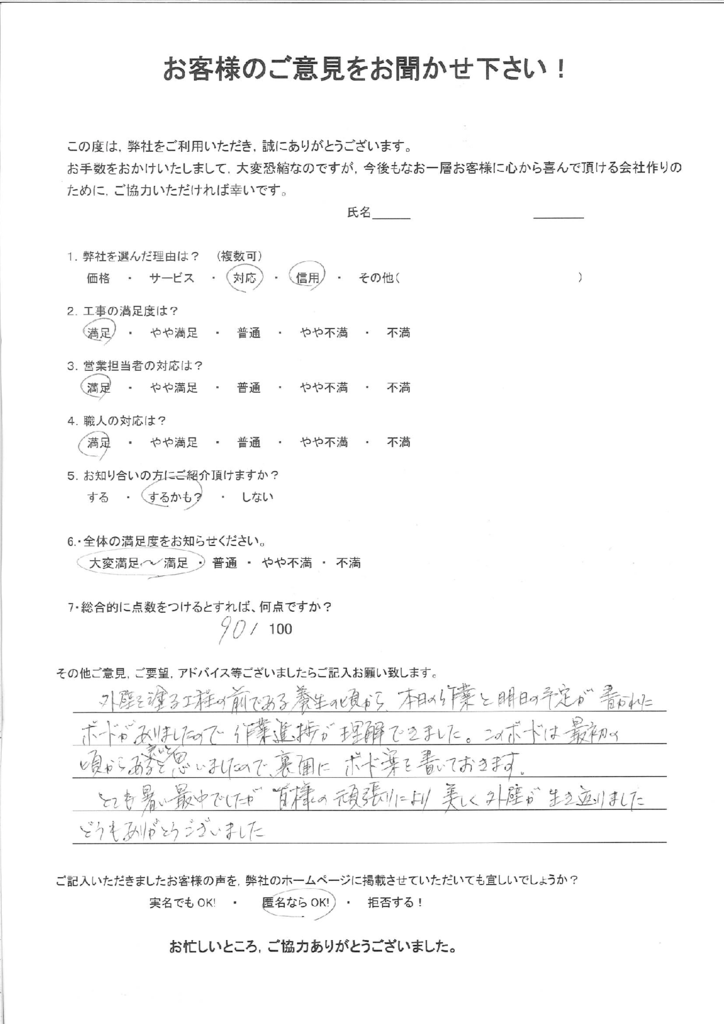 お客様のご意見をお聞かせ下さい！
この度は，弊社をご利用いただき，誠にありがとうございます。
お手数をおかけいたしまして，大変恐縮なのですが，今後もなお一層お客様に心から喜んで頂ける会社作りの
ために，ご協力いただければ幸いです。
氏名
1．弊社を選んだ理由は？　（複数可）
価格　・　サービス　・　対応　・　信用　・　その他（　　　　　　　　）
2．工事の満足度は？
満足　・　やや満足　・　普通　・　やや不満　・　不満
3．営業担当者の対応は？
満足　・　やや満足　・　普通　・　やや不満　・　不満
4．職人の対応は？
満足　・　やや満足　・　普通　・　やや不満　・　不満
5．お知り合いの方にご紹介頂けますか？
する　・　するかも？　・　しない
6.・全体の満足度をお知らせください。
大変満足～満足　・　普通　・　やや不満　・　不満
7・総合的に点数をつけるとすれば、何点ですか？
90/ 100
その他ご意見，ご要望，アドバイス等ございましたらご記入お願い致します。
外壁を塗る工程の前である養生の頃から 本日の作業と明日の予定が書かれた
ボードがありましたので 作業進捗が理解できました。このボードは最初の
頃からあると良いと思いましたので、裏面に ボード案を書いておきます。
とても暑い最中でしたが 皆様の頑張りにより 美しく外壁が生き返りました
どうもありがとうございました
ご記入いただきましたお客様の声を，弊社のホームページに掲載させていただいても宜しいでしょうか？
実名でもOK!　・　匿名ならOK!　・　拒否する！
お忙しいところ，ご協力ありがとうございました。